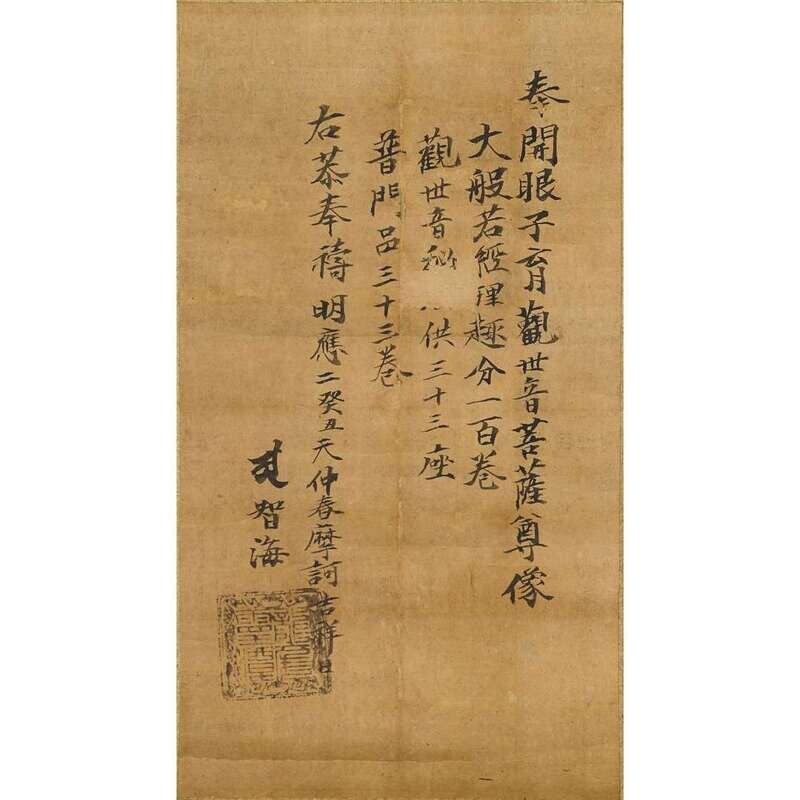 奉開眼子育觀世音菩薩尊像
大般若經理趣分一百卷
觀世音秘 供三十三座
普門品三十三卷
右恭奉禱明應二癸丑天仲春摩訶吉祥日
智海